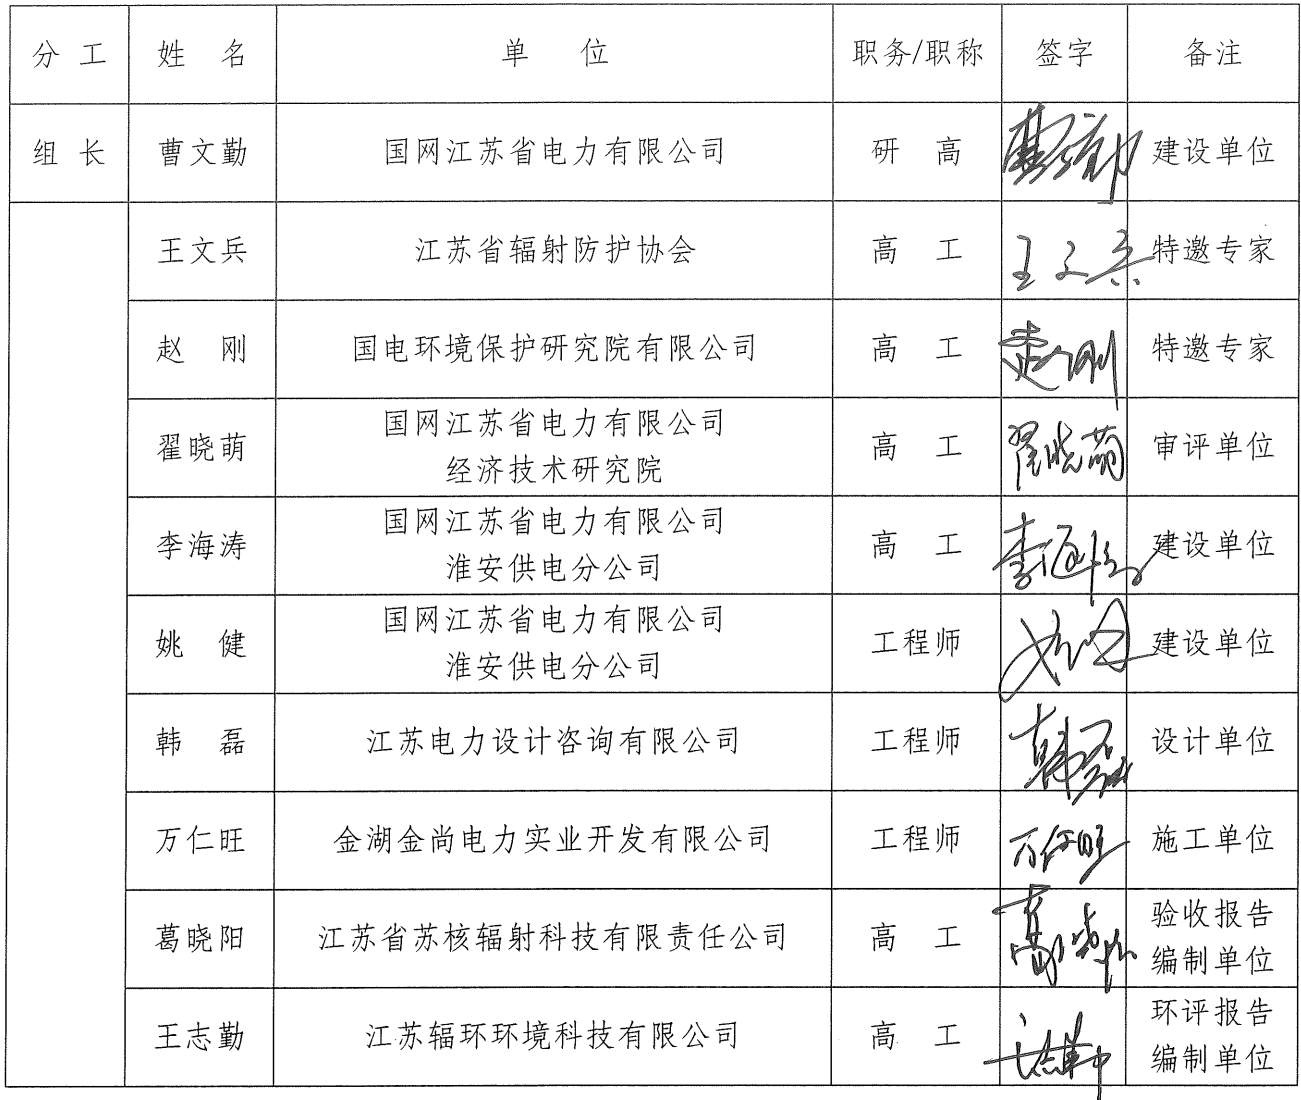 分工 姓名 单位 职务/职称 签字 备注
组长 曹文勤 国网江苏省电力有限公司 研高 曹文勤 建设单位
王文兵 江苏省辐射防护协会 高工 王文兵 特邀专家
赵刚 国电环境保护研究院有限公司 高工 赵刚 特邀专家
翟晓萌 国网江苏省电力有限公司 高工 翟晓萌 审评单位
经济技术研究院
李海涛 国网江苏省电力有限公司 高工 李海涛 建设单位
淮安供电分公司
姚健 国网江苏省电力有限公司 工程师 姚健 建设单位
淮安供电分公司
韩磊 江苏电力设计咨询有限公司 工程师 韩磊 设计单位
万仁旺 金湖金尚电力实业开发有限公司 工程师 万仁旺 施工单位
葛晓阳 江苏省苏核辐射科技有限责任公司 高工 葛晓阳 验收报告
编制单位
王志勤 江苏辐环环境科技有限公司 高工 王志勤 环评报告
编制单位